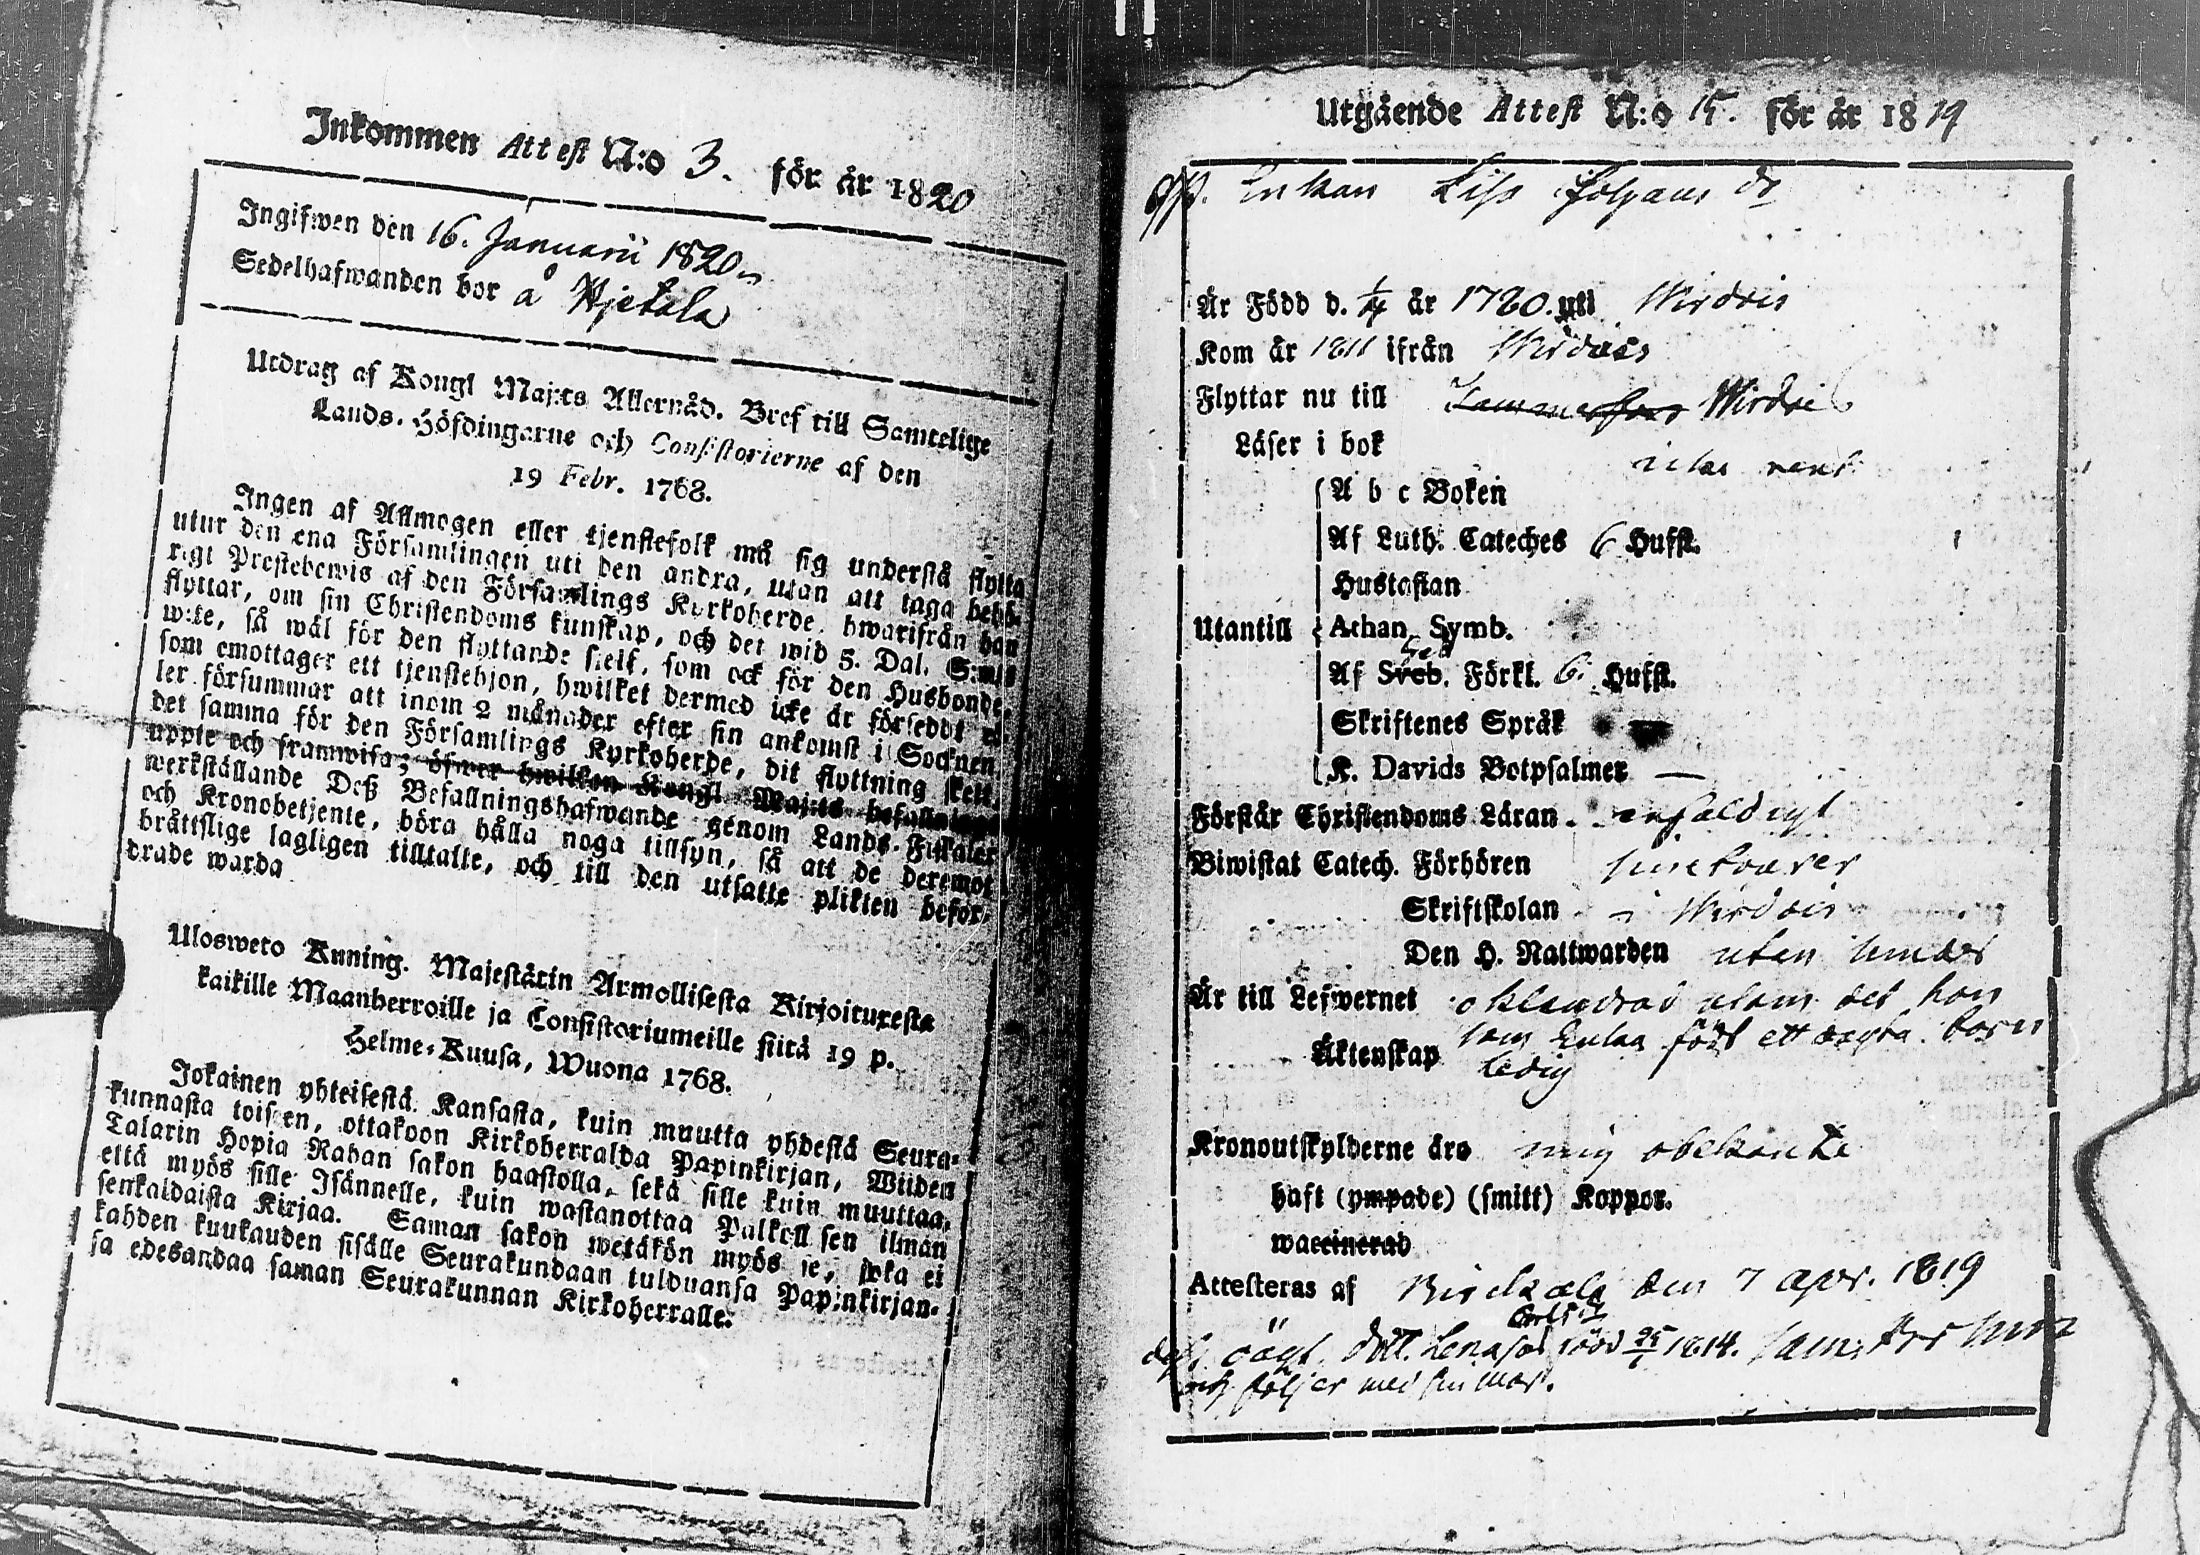 Inkommen Attest N:o 3. för år 1820
Ingifwen den 16. Januarii 1820
Sedelhafwanden bor å Hjetala
Utdrag af Kongl Maj:ts Allernåd. Bref till Samtelige
Lands-Höfdingarne och Consistorierne af den
19 Febr. 1768.
Ingen af Allmogen eller tjenstefolk må sig understå flytta
utur den ena Församlingen uti den andra, utan att taga behö-
rigt Prestebewis af den Församlings Kyrkoherde, hwarifrån han
flyttar, om sin Christendoms kunskap, och det wid 5. Dal. S:mts
wite, så wäl för den flyttande sielf, som ock för den Husbonde,
som emottager ett tjenstehjon, hwilket dermed icke är försedt el-
ler försummar att inom 2 månader efter sin ankomst i Socknen
det samma för den Församlings Kyrkoherde, dit flyttning skett,
uppte och framwisa; öfwer hwilken Kongl Maj:ts befallnings
werkställande Deß Befallningshafwande genom Lands-Fiskaler
och Kronobetjente, böra hålla noga tillsyn, så att de deremot
bråttslige lagligen tilltalte, och till den utsatte plikten befor-
drade warda
Ulosweto Kuning. Majestätin Armollisesta Kirjoituxesta
kaikille Maanherroille ja Consistoriumeille siitä 19 p.
Helme-Kuusa, Wuona 1768.
Jokainen yhteisestä Kansasta, kuin muutta yhdestä Seura-
kunnasta toiseen, ottakoon Kirkoherralda Papinkirjan, Wiiden
Talarin Hopia Rahan sakon haastolla, sekä sille kuin muuttaa,
että myös sille Isännelle, kuin wastanottaa Palkoll sen ilman
senkaldaista Kirjaa. Saman sakon wetäkön myös se, joka ei
kahden kuukauden sisälle Seurakundaan tulduansa Papinkirjan-
sa edesandaa saman Seurakunnan Kirkoherralle.
Utgående Attest N:o 15. för år 1819
Enkan Lisa
Är Född d. år 1760. uti Wirdois
Kom år 1811 ifrån Wirdois
Flyttar nu till Tammerfors Wirdois
Läser i bok rent
A b c Boken
Af Luth. Cateches 6 Hufst.
Hustaflan
Utantill Athan Symb.
Af Sveb. Förkl. 6. Hufst.
Skriftenes Språk
K. Davids Botpsalmer —
Förstår Christendoms Läran enfaldigt
Biwistat Catech. Förhören
Skriftskolan i Wirdois
Den H. Nattwarden utan hinder
Är till Lefwernet oklandrad utom det hon
som Enka födt ett oägta barn
Äktenskap ledig
Kronoutskylderne äro mig obekante
haft (ympade) (smitt) Koppor.
waccinerad
Attesteras af Birckala den 7 apr. 1819
oägt. dott. Lenasa född 25/1 1814.
följer med sin mor.